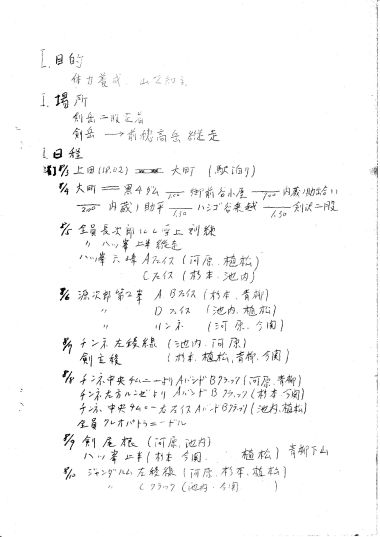 I. 目的
体力養成
I. 場所
剣岳二股定着
剣岳 → 前穂高岳縦走
I 日程
8/3 上田(18.02) 大町 (駅泊り)
8/4 大町 黒4ダム 1.00 御前谷小屋 7.00 内蔵ノ助出合い
2.00 内蔵ノ助平 1.30 ハシゴ谷乗越 1.30 剣沢二股
8/5 全員長次郎にて雪上訓練
〃 八ッ峯上半縦走
八ッ峯六峰Aフェイス (河原、植松)
Cフェイス (杉本、池内)
8/6 源次郎第2峯 A Bフェイス (杉本、青柳)
〃 Dフェイス (池内、植松)
〃 リンネ (河原、今関)
8/7 チンネ左稜線 (池内、河原)
剣主稜 (杉本、植松、青柳、今関)
8/8 チンネ中央チムニーよりAバンドBクラック(河原、青柳)
チンネ左方ルンゼよりAバンドBクラック(杉本、今関)
チンネ、中央チムニー左フェイスAバンドBクラック(池内、植松)
全員クレオパトラニードル
8/9 剣尾根 (河原、池内)
八ッ峯上半(杉本、今関、植松) 青柳下山
8/10 ジャンダルム左稜線 (河原、杉本、植松)
〃 Cクラック (池内、今関)